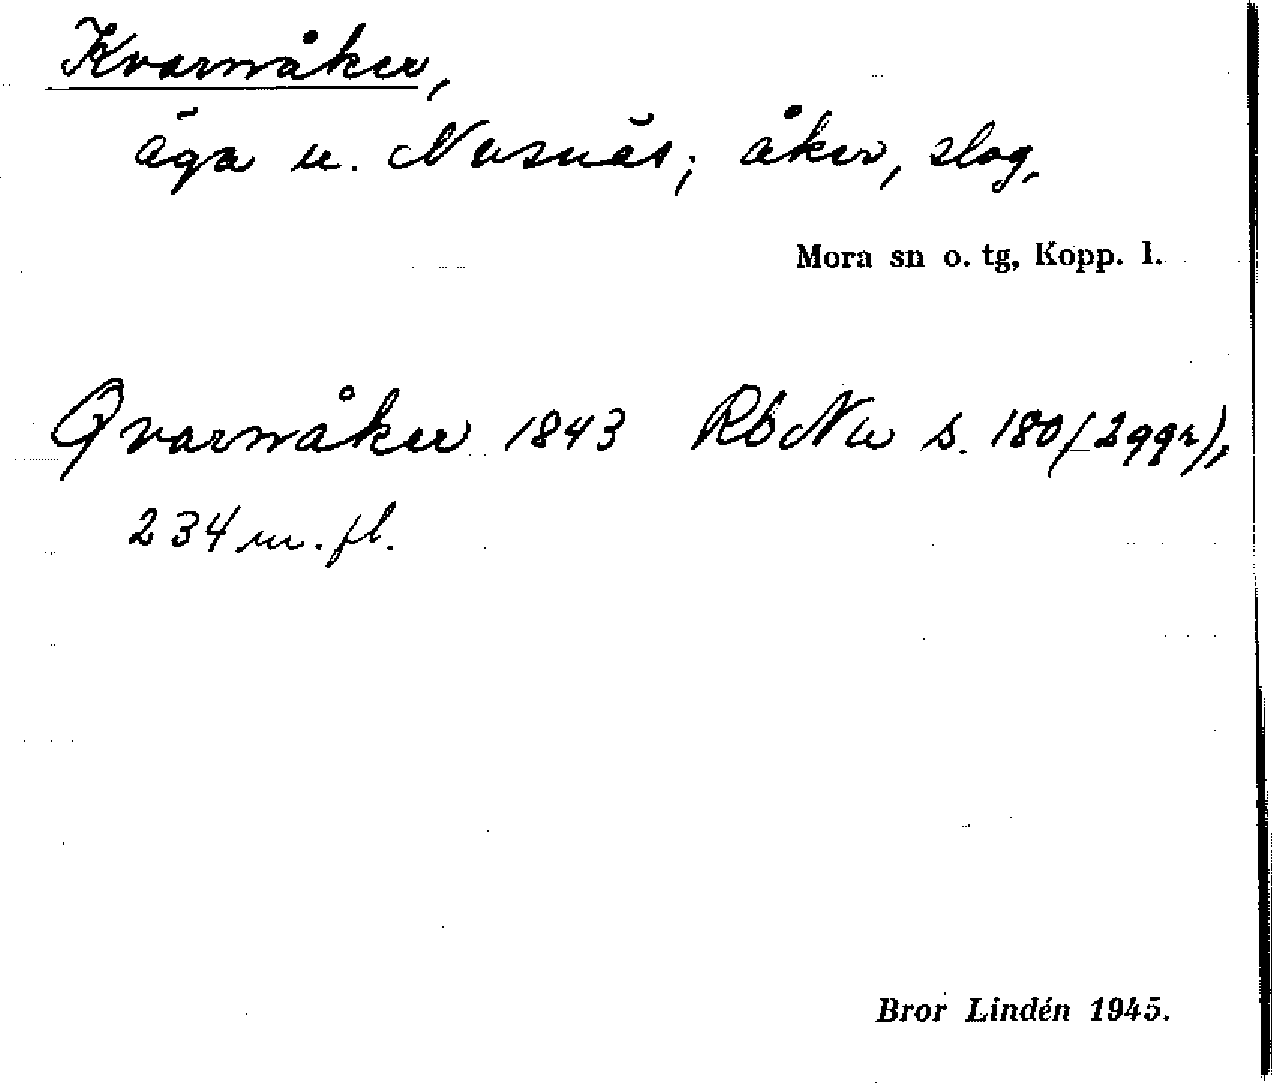 Kvarnåker,
äga u. Nusnäs; åker, slog.
Mora sn o. tg, Kopp. l.
Qvarnåker 1843 Rb Nu s. 180 (2 ggr),
234 m. fl.
Bror Lindén 1945.